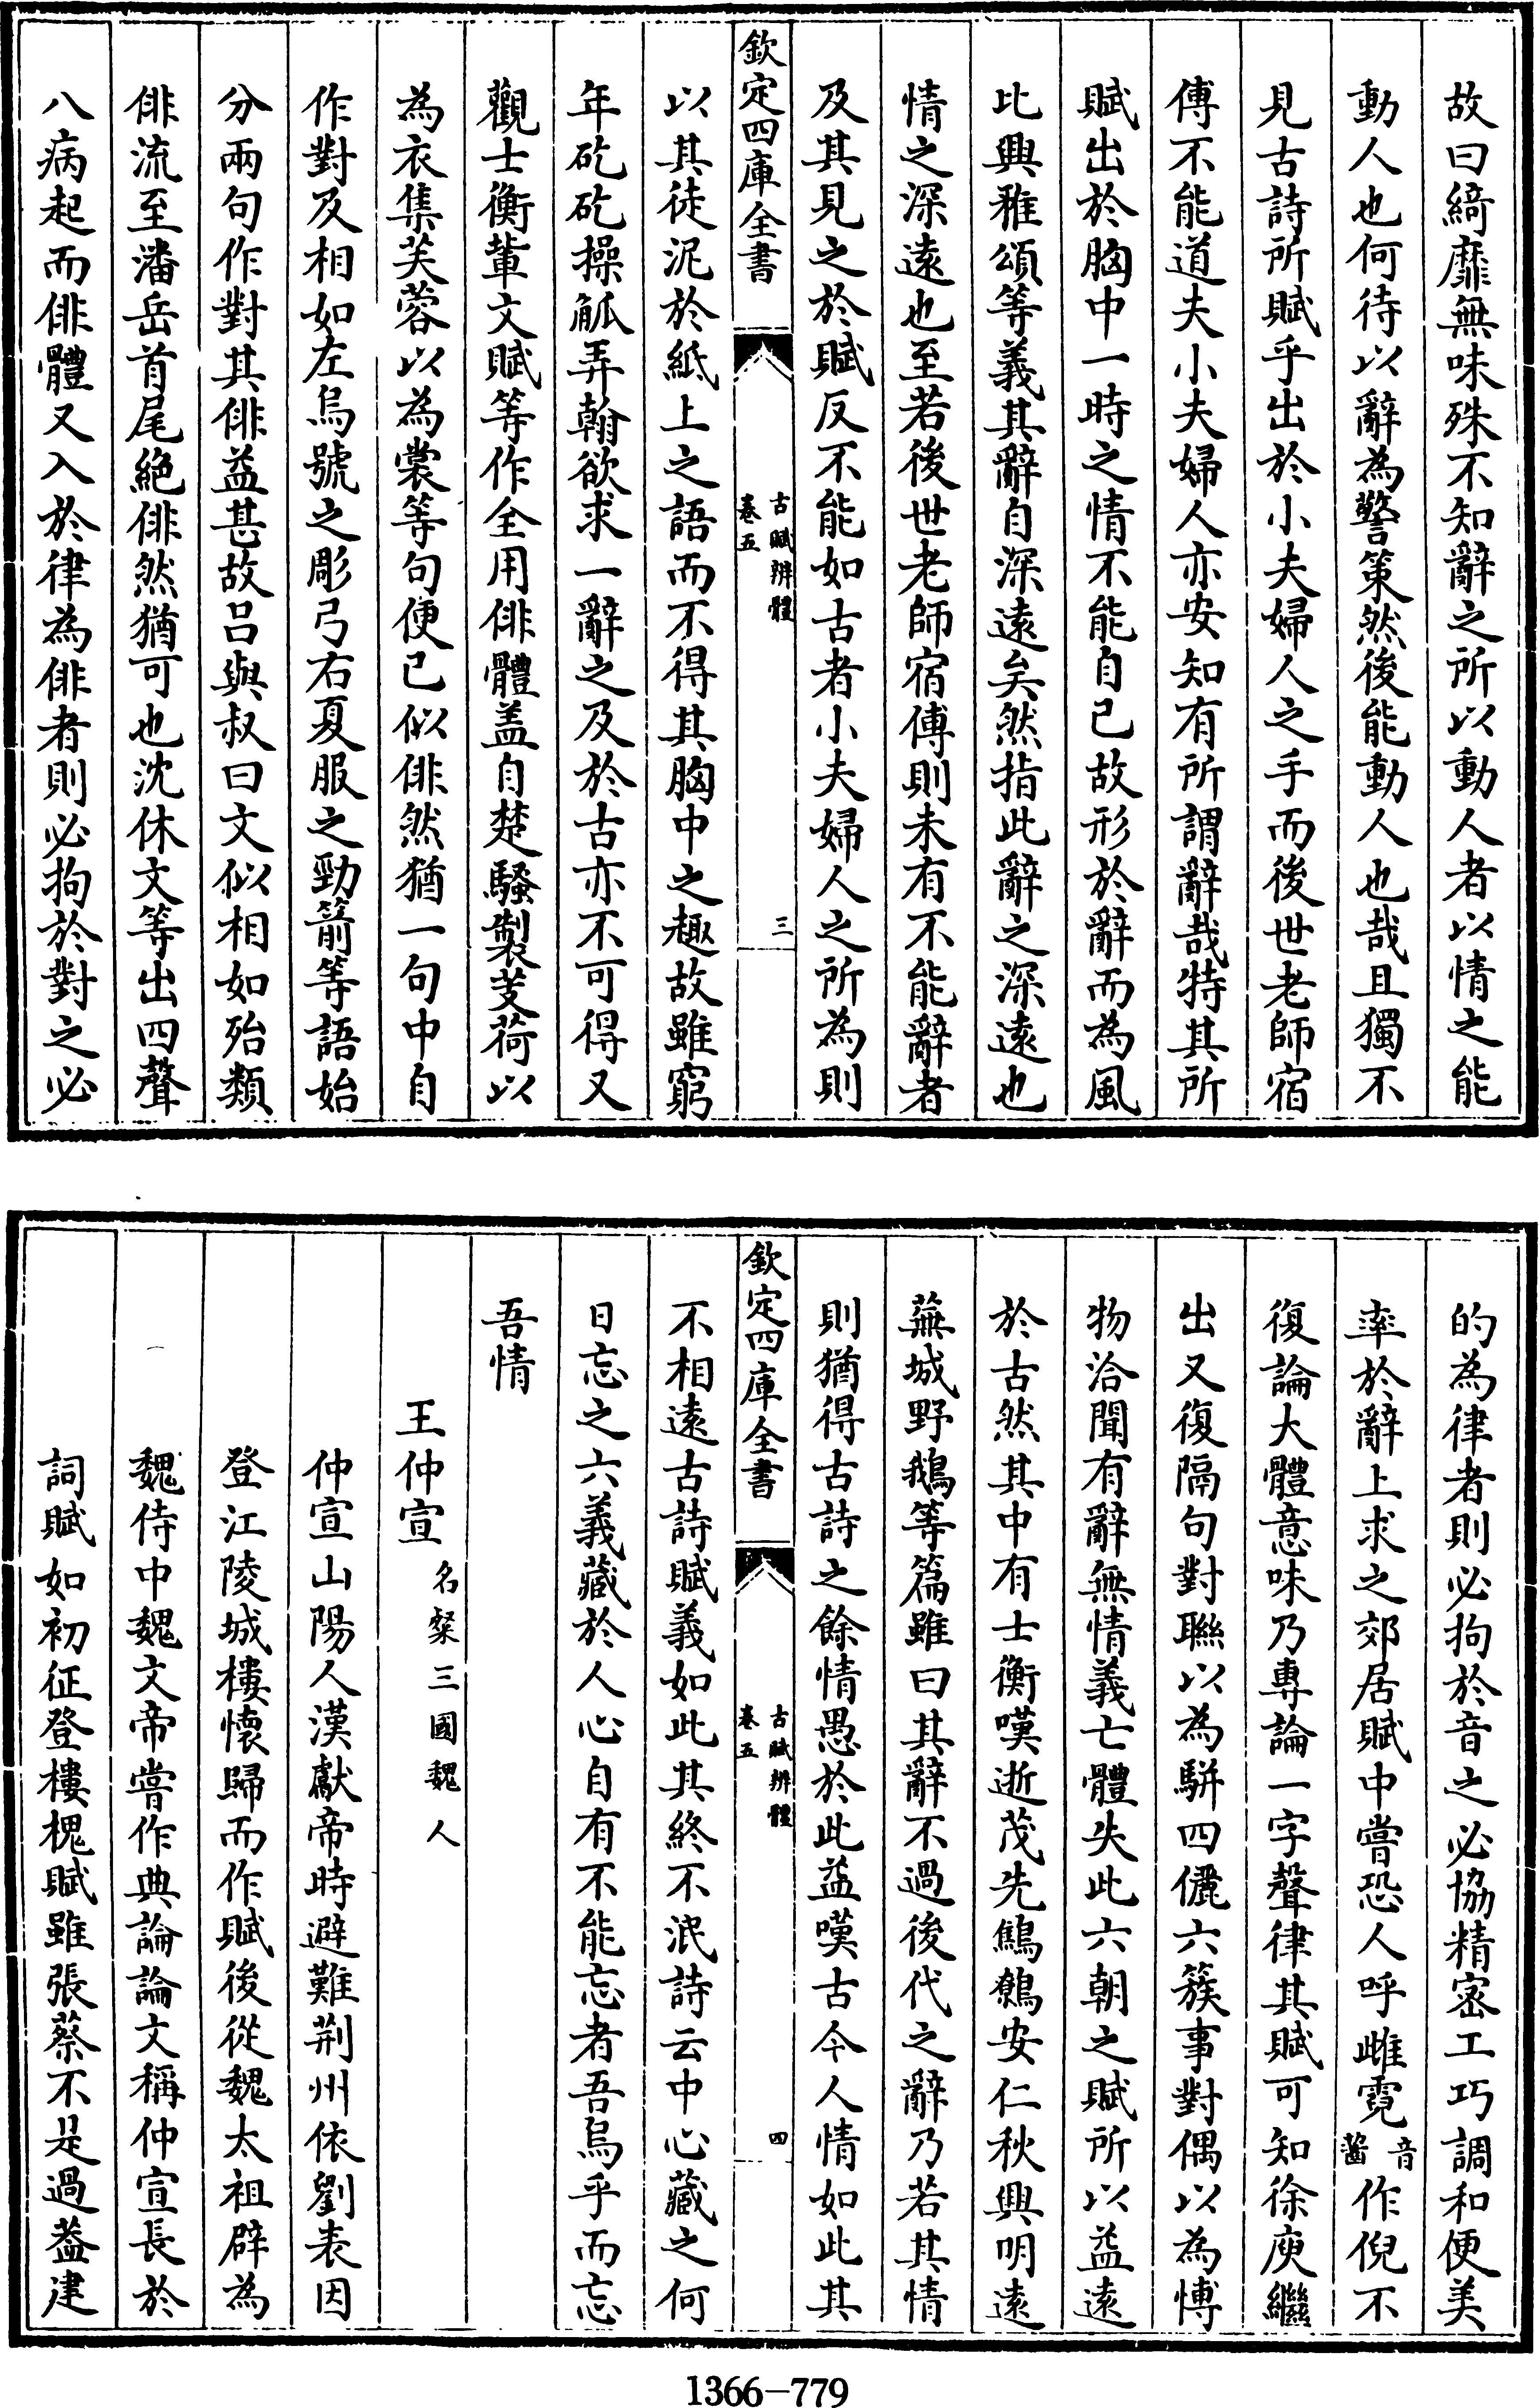 故曰綺靡無味殊不知辭之所以動人者以情之能
動人也何待以辭為警策然後能動人也哉且獨不
見古詩所賦乎出於小夫婦人之手而後世老師宿
傅不能道夫小夫婦人亦安知有所謂辭哉特其所
賦出於胸中一時之情不能自已故形於辭而為風
比興雅頌等義其辭自深遠矣然指此辭之深遠也
情之深遠也至若後世老師宿傅則未有不能辭者
及其見之於賦反不能如古者小夫婦人之所為則
欽定四庫全書
古賦辨體
卷五
三
以其徒泥於紙上之語而不得其胸中之趣故雖窮
年矻矻操觚弄翰欲求一辭之及於古亦不可得又
觀士衡輩文賦等作全用俳體蓋自楚騷製芰荷以
為衣集芙蓉以為裳等句便已似俳然猶一句中自
作對及相如左烏號之彫弓右夏服之勁箭等語始
分兩句作對其俳益甚故呂與叔曰文似相如殆類
俳流至潘岳首尾絕俳然猶可也沈休文等出四聲
八病起而俳體又入於律為俳者則必拘於對之必
的為律者則必拘於音之必協精密工巧調和便美
率於辭上求之郊居賦中嘗恐人呼雌霓音齧作倪不
復論大體意味乃專論一字聲律其賦可知徐庾繼
出又復隔句對聯以為駢四儷六簇事對偶以為博
物洽聞有辭無情義亡體失此六朝之賦所以益遠
於古然其中有士衡嘆逝茂先鷦鷯安仁秋興明遠
蕪城野鵝等篇雖曰其辭不過後代之辭乃若其情
則猶得古詩之餘情愚於此益嘆古今人情如此其
欽定四庫全書
古賦辨體
卷五
四
不相遠古詩賦義如此其終不泯詩云中心藏之何
日忘之六義藏於人心自有不能忘者吾烏乎而忘
吾情
王仲宣名粲三國魏人
仲宣山陽人漢獻帝時避難荆州依劉表因
登江陵城樓懷歸而作賦後從魏太祖辟為
魏侍中魏文帝嘗作典論論文稱仲宣長於
詞賦如初征登樓槐賦雖張蔡不是過蓋建
1366-779